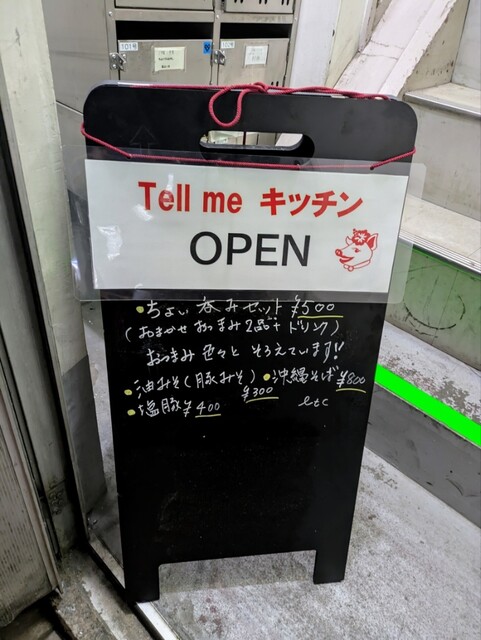 101号
102号
Tell me キッチン
OPEN
・ちょい呑みセット ¥500
(おまかせおつまみ2品+ドリンク)
おつまみ色々とそろえています!!
・油みそ(豚みそ) ¥300
・沖縄そば ¥800
・塩豚 ¥400
etc